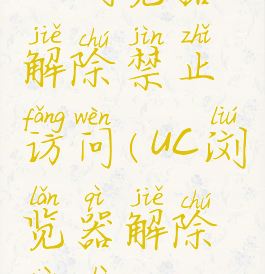 览器
jiě chú jìn zhǐ
解除禁止
fǎng wèn liú
访问(UC浏
lǎn qì jiě chú
览器解除